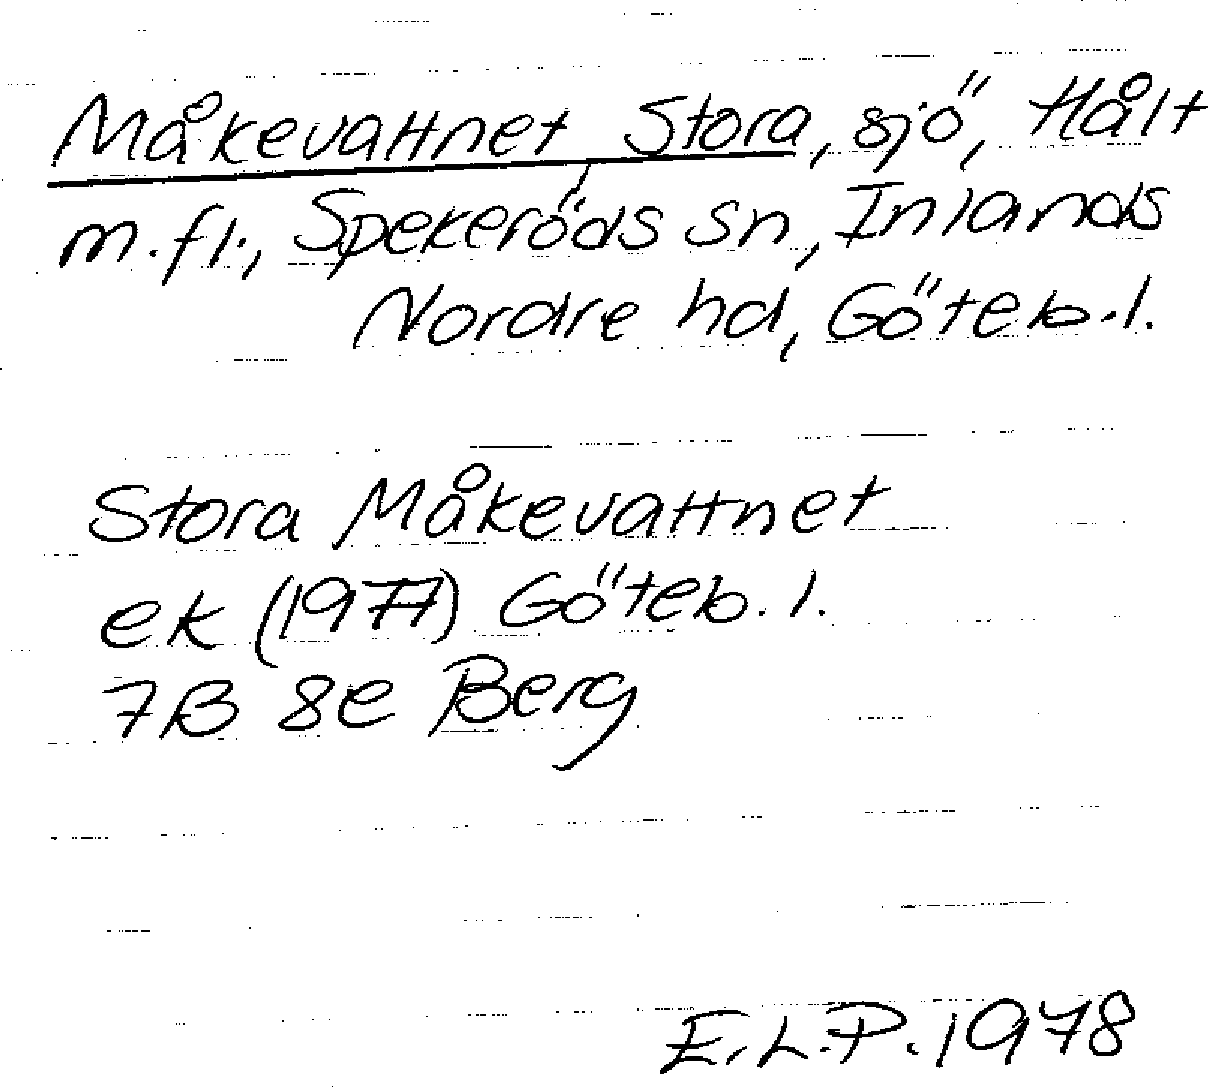 Måkevattnet Stora, sjö, Hålt
m.fl., Spekeröds sn, Inlands
Nordre hd, Göteb.l.
Stora Måkevattnet
ek (1977) Göteb.l.
7B 8e Berg
E.L.P. 1978